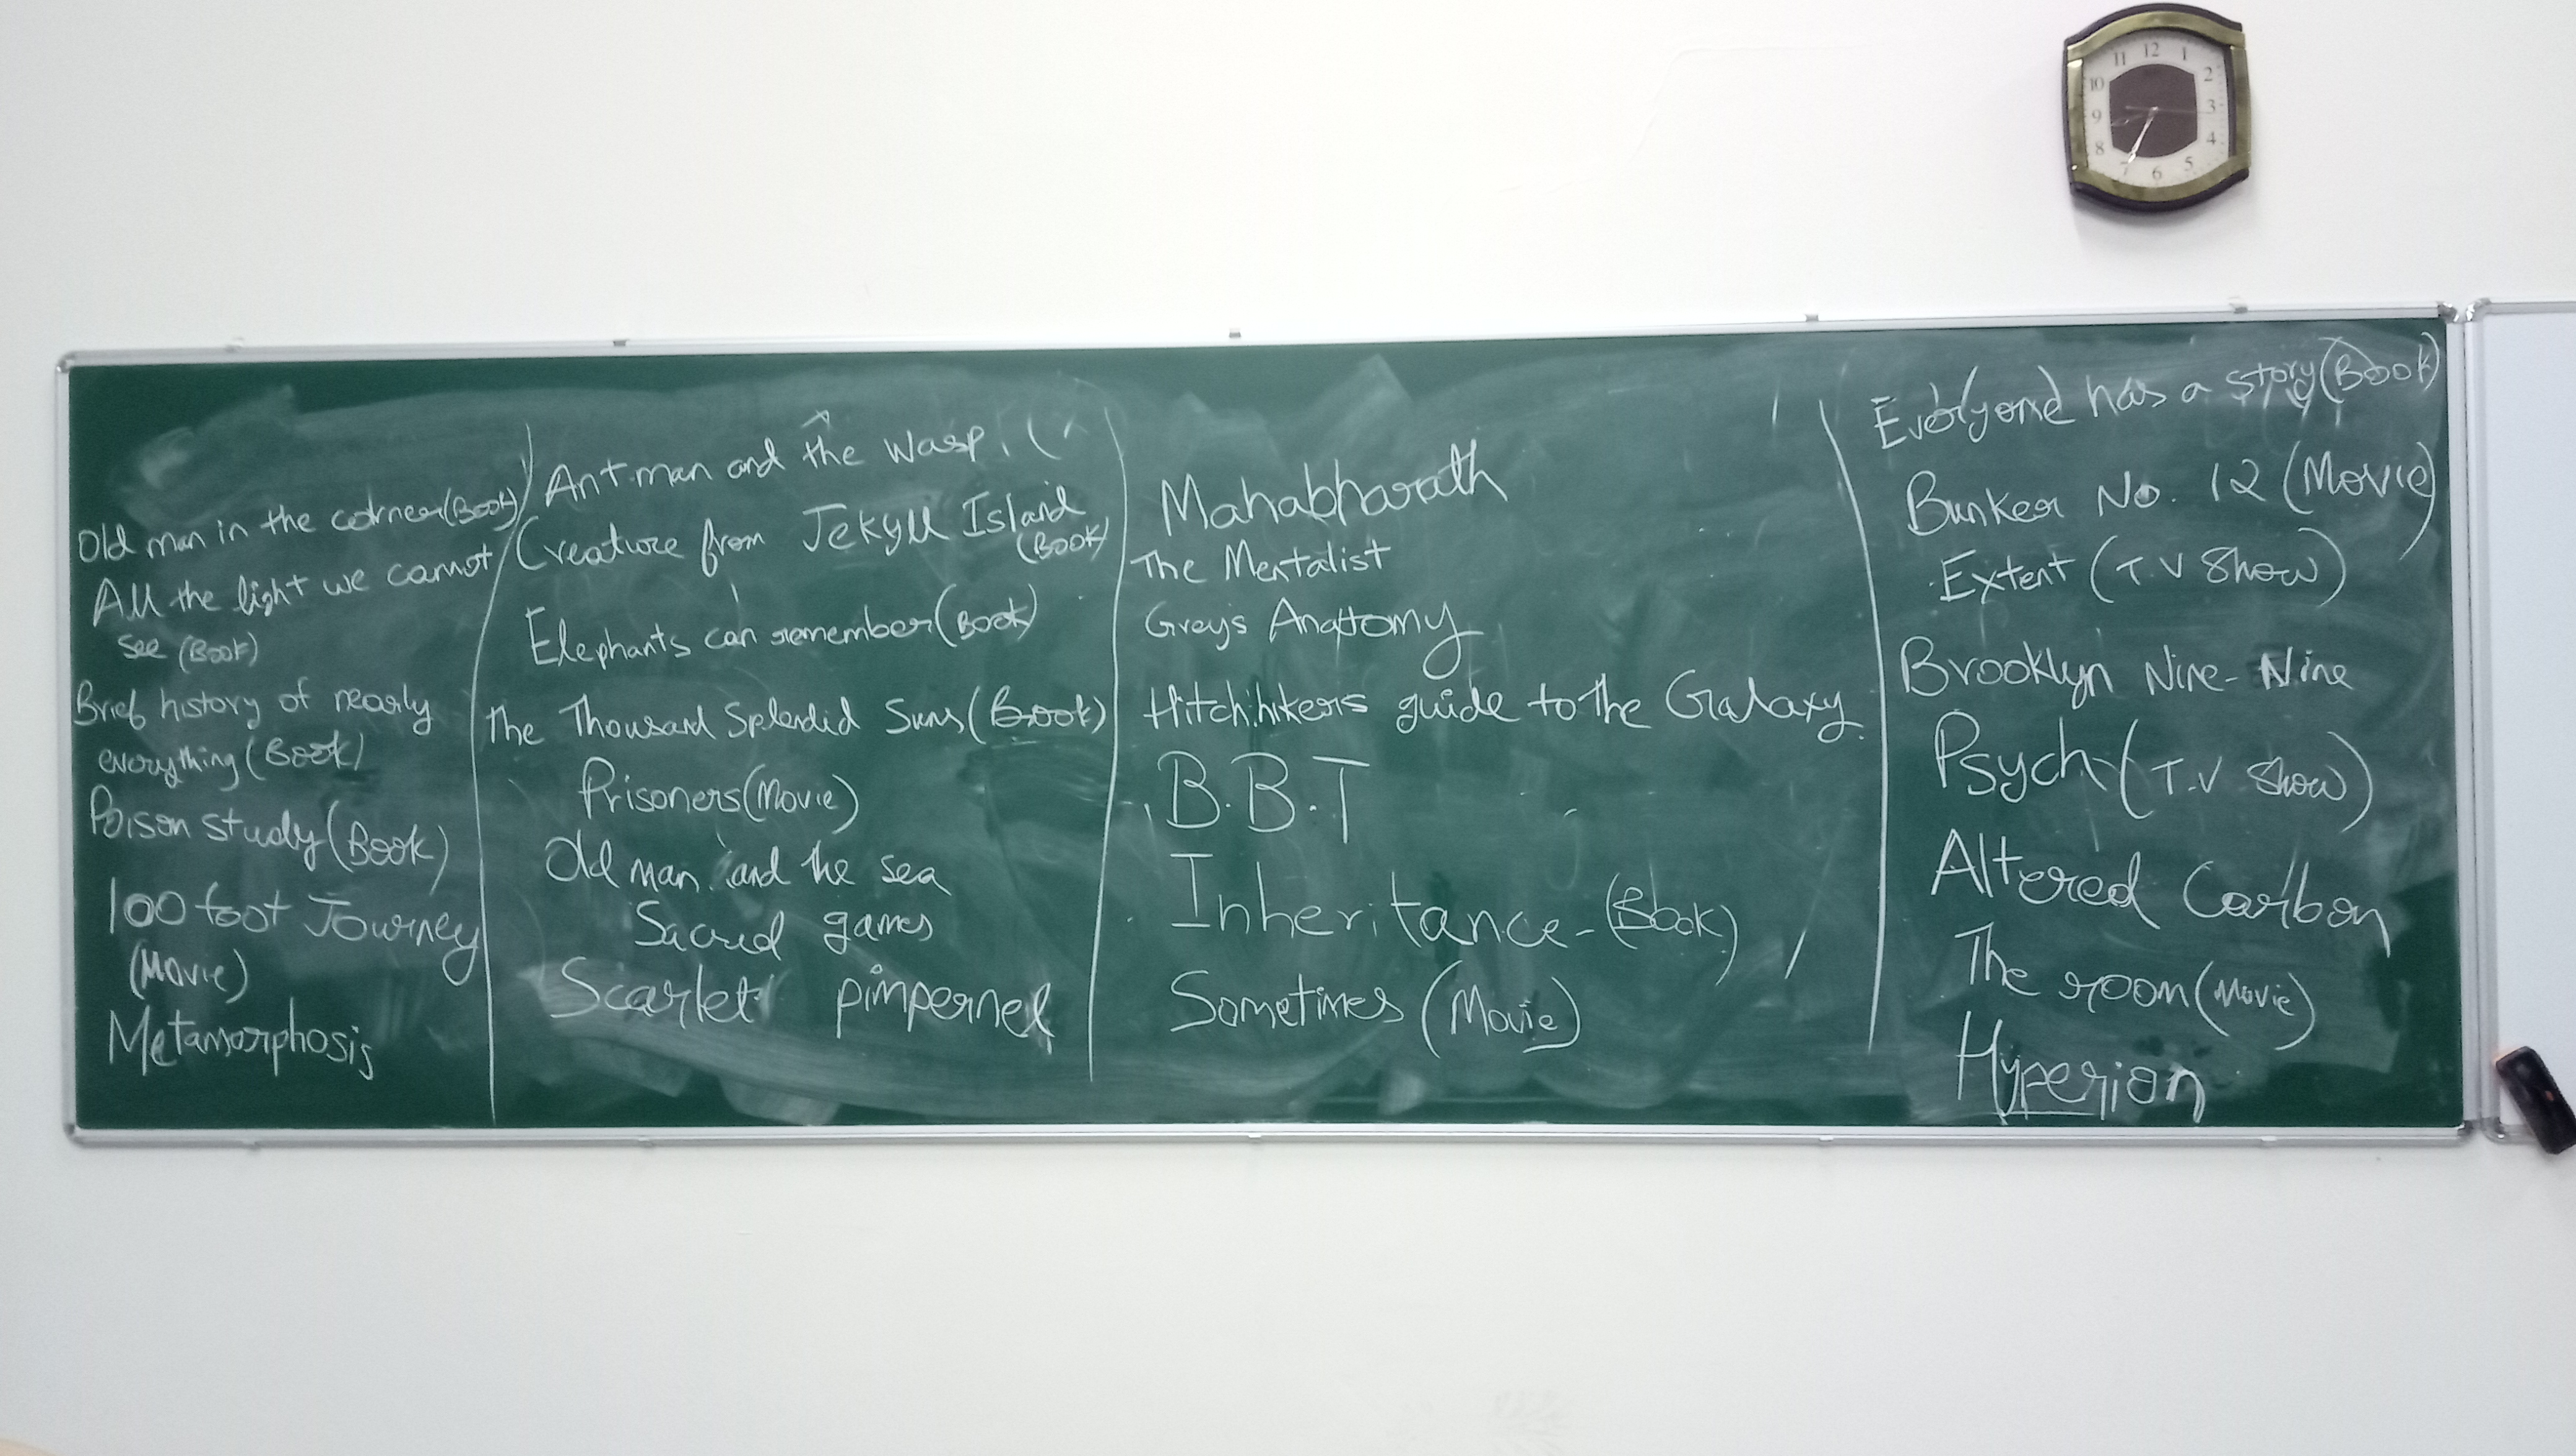 12
11
1
10
2
9
3
8
4
7
5
6
Old man in the corner (Book)
All the light we cannot
see (Book)
Brief history of nearly
everything (Book)
Poison study (Book)
100 foot Journey
(Movie)
Metamorphosis
Ant-man and the wasp. (
Creature from Jekyll Island
(Book)
Elephants can remember (Book)
The Thousand Splendid Suns (Book)
Prisoners (Movie)
Old man and the sea
Sacred games
Scarlet pimpernel
Mahabharath
The Mentalist
Greys Anatomy
Hitchhikers guide to the Galaxy
B.B.T
Inheritance - (Book)
Sometimes (Movie)
Everyone has a story (Book)
Bunker No. 12 (Movie)
Extent (T.V Show)
Brooklyn Nine-Nine
Psych (T.V Show)
Altered Carbon
The room (Movie)
Hyperion